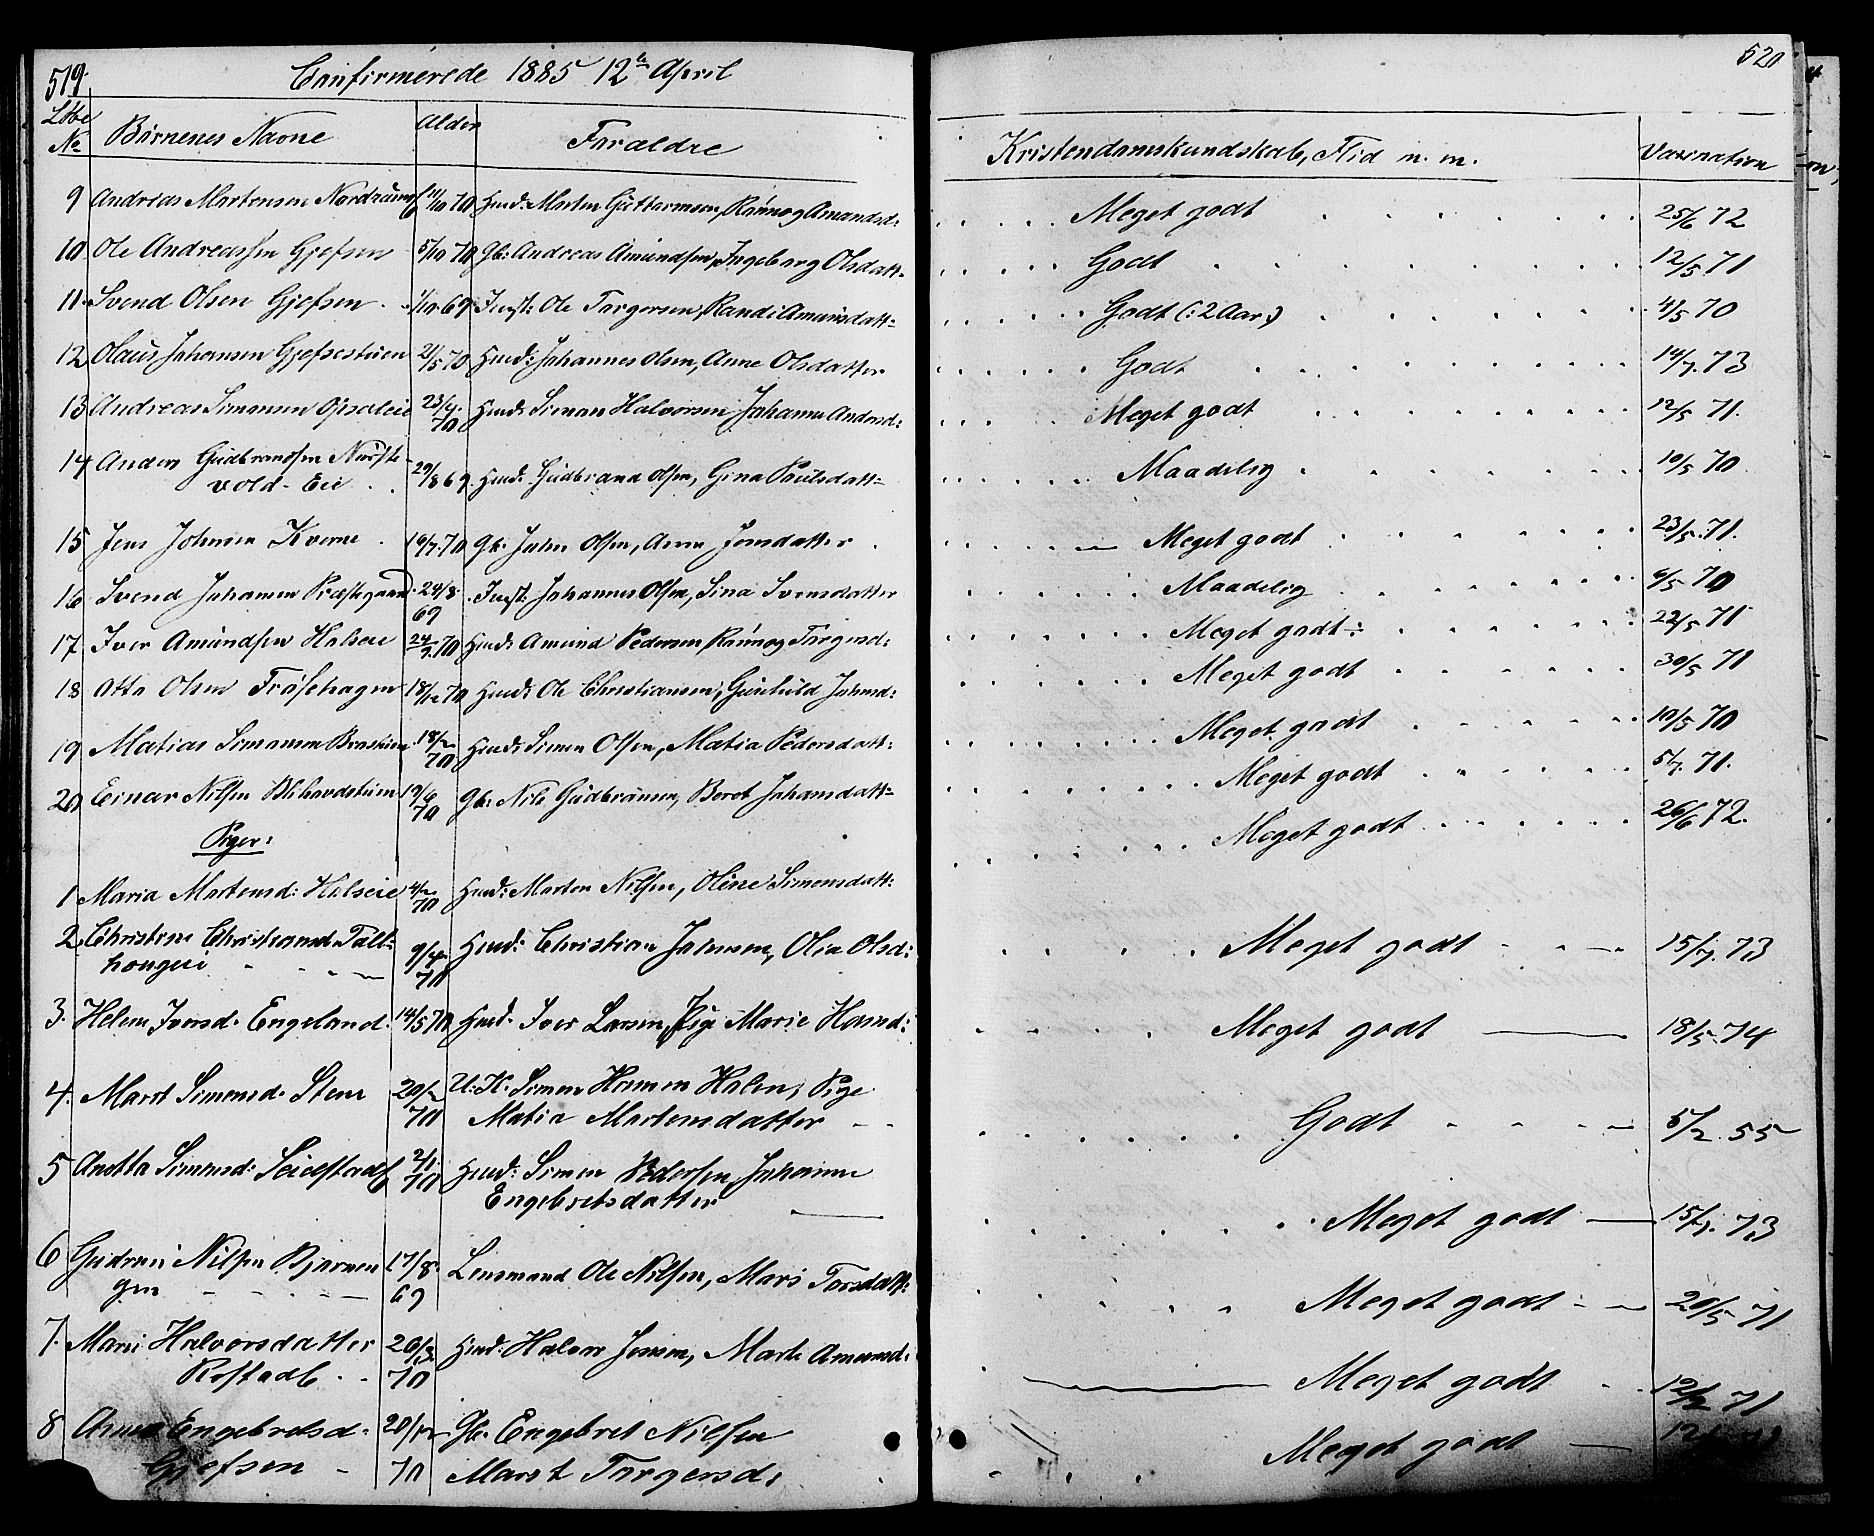 519
Confirmerede 1885 12te April
Løbe No
Börnenes Navne
Alder
Forældre
9 Andreas Martensen Nordrum 11/10 70 Huusm: Marten Guttormsen, Rønnog Amundsd:
10 Ole Andreassen Gjefsen 5/10 70 Gb: Andreas Amundsen, Ingeborg Olsdatt.
11. Svend Olsen Gjefsen 1/10 69 Inst: Ole Torgersen, Randi Amundsdatt=
12 Olaus Johansen Gjefsestuen 21/5 70 Huusm: Johannes Olsen, Anne Olsdatter
13 Andreas Simensen Opsaleie 23/4 70 Huusm: Simen Halvorsen Johanne Andersd:
14 Anders Gudbrandsen
vold-Eie 29/8 69. Huusm: Gudbrand Olsen, Gina Paulsdatt=
15 Jens Johnsen Kverne 10/7 70 Gb. John Olsen, Anne Jonsdatter
16 Svend Johansen Præstegaard 24/8 69 Inst: Johannes Olsen, Sina Svensdatter
17 Iver Amundsen Halseie 24/7. 70 Huusm: Amund Pedersen, Rønnog Torgersd:
18 Otto Olsen Fröisehagen 18/12 70 Huusm: Ole Christiansen, Gunhild Johnsd:
19 Matias Simensen 18/2 70 Huusm: Simen Olsen, Matia Pedersdatt:
20 Einar Nilsen 19/6 70 Gb: Nils Gudbransen, Beret Johansdatt=
Piger:
1 Maria Martensd: Halseie 4/2 70 Huusm: Marten Nilsen, Oline Simensdatt:
2. Christine Christiansd. Toll-
hougeie 9/4 70 Huusm: Christian Johnsen, Olia Olsd:
3. Helene Iversd. Engeland. 14/5 70 Huusm. Iver Larsen, Pige Marie Hansd:
4. Marit Simensd. Steen 20/2 70 U.K. Simen Hansen Holen, Pige
Matia Martensdatter
5 Anetta Simensd: Seielstad 2/1 70 Huusm: Simen Pedersen, Johanne
Engebretsdatter
6 Gudrun Nilsen Bjørnen
gen 17/8. 69 Lensmand Ole Nilsen, Mari Torsdatt:
7. Mari Halvorsdatter
Rostadb. 26/3 70 Huusm: Halvor Jensen, Marte Amundsd:
8 Anne Engebretsd.
Gjefsen 20/12 70 Gb. Engebret Nilsen
Marit Torgersd:
520
Kristendomskundskab, Flid m. m.
Vaxination
Meget godt 25/6 72
Godt 12/5 71
Godt (: 2 Aar :) 4/5 70
Godt 14/7. 73
Meget godt 12/5 71.
Maadelig 10/5 70
Meget godt 23/5. 71.
Maadelig 6/5 70
Meget godt÷ 22/5 71
Meget godt 30/5 71
Meget godt 10/5 70
Meget godt 5/7. 71.
Meget godt 26/6 72.
Meget godt 15/7. 73
Meget godt 18/5. 74
Godt 5/2. 55
Meget godt 15/7. 73
Meget godt 20/5 71
Meget godt 12/2 71
Meget godt